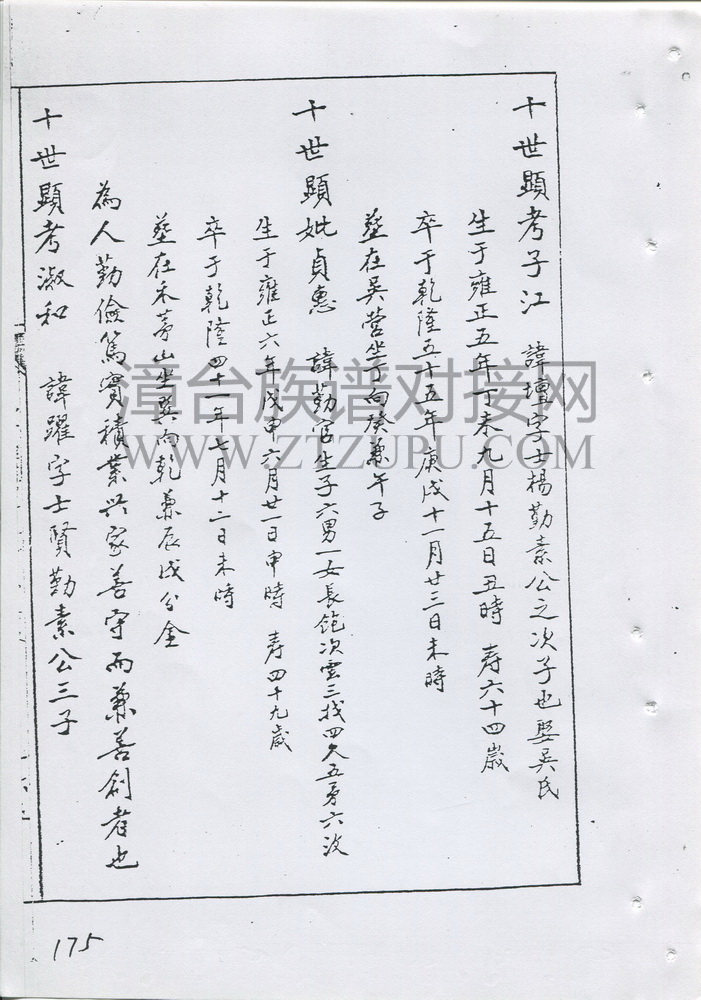 十世顯考子江 諱壇字士楊勤素公之次子也娶吳氏
生于雍正五年丁未九月十五日丑時 寿六十四歲
卒于乾隆五十五年庚戌十一月廿三日未時
塟在吳營坐丁向癸兼午子
十世顯妣貞惠 諱勤官生子六男一女長飽次雲三找四久五勇六波
生于雍正六年戊申六月廿一日申時 寿四十九歲
卒于乾隆四十一年七月十二日未時
塟在禾茅山坐巽向乾兼辰戌分金
為人勤儉篤實積業興家善守而兼善創者也
十世顯考淑和 諱躍字士賢勤素公三子
漳台族谱对接网
WWW.ZTZUPU.COM
175